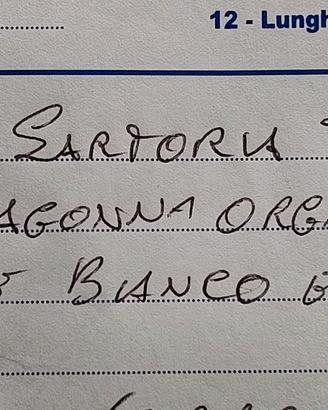 12 - Lungh
SARTORIA
AGONNA ORG
BIANCO